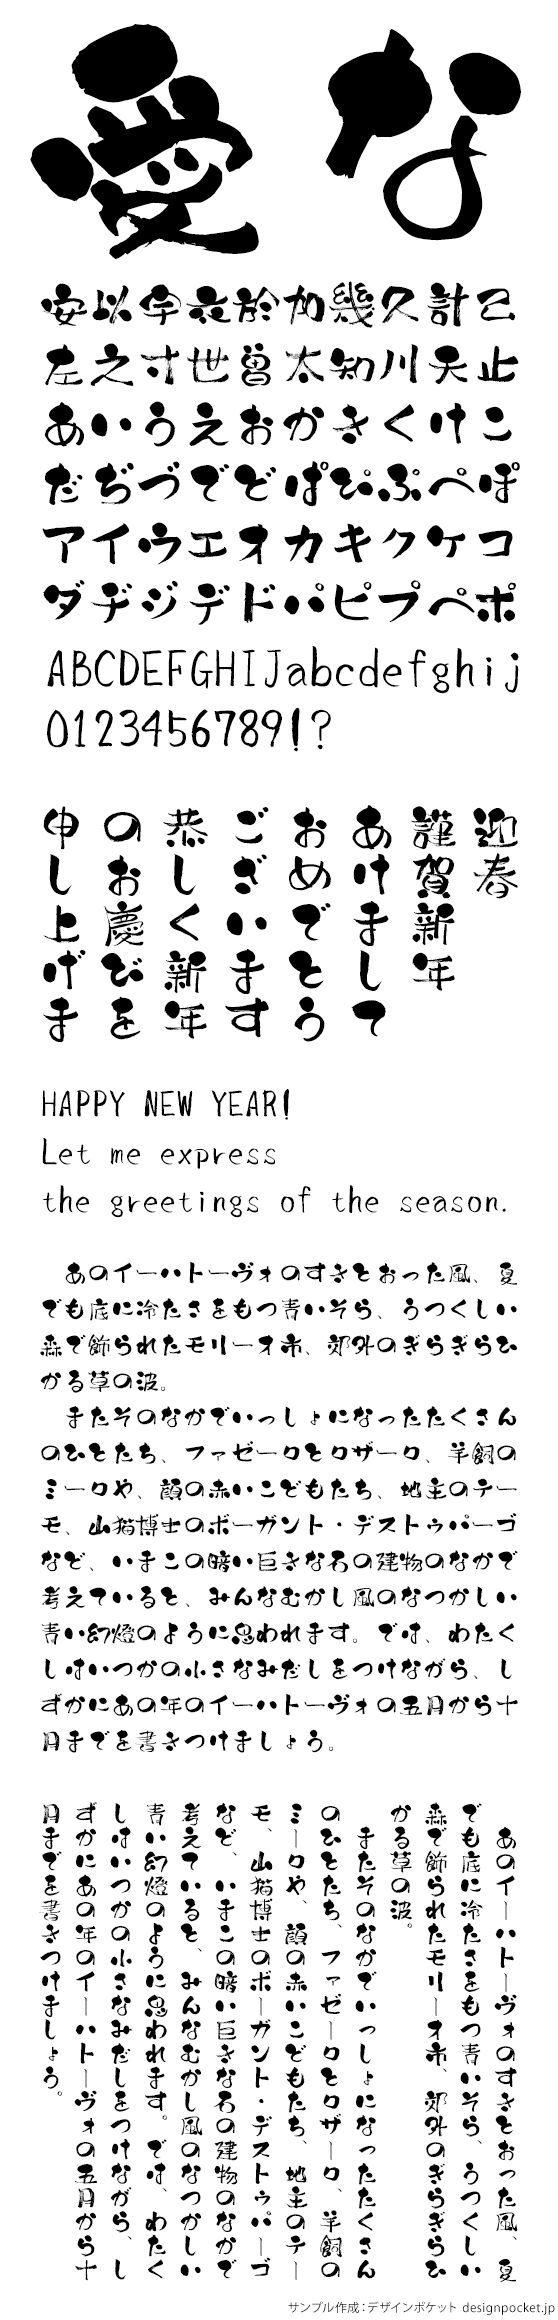 愛な
安以宇衣於加幾久計己
左之寸世曽太知川天止
あいうえおかきくけこ
だぢづでどぱぴぷぺぽ
アイウエオカキクケコ
ダヂジデドパピプペポ
ABCDEFGHIJabcdefghij
0123456789!?
迎春
謹賀新年
あけまして
おめでとう
ございます
恭しく新年
のお慶びを
申し上げま
HAPPY NEW YEAR!
Let me express
the greetings of the season.
あのイーハトーヴォのすきとおった風、夏
でも底に冷たさをもつ青いそら、うつくしい
森で飾られたモリーオ市、郊外のぎらぎらひ
かる草の波。
またそのなかでいっしょになったたくさん
のひとたち、ファゼーロとロザーロ、羊飼の
ミーロや、顔の赤いこどもたち、地主のテー
モ、山猫博士のボーガント・デストゥパーゴ
など、いまこの暗い巨きな石の建物のなかで
考えていると、みんなむかし風のなつかしい
青い幻燈のように思われます。では、わたく
しはいつかの小さなみだしをつけながら、し
ずかにあの年のイーハトーヴォの五月から十
月までを書きつけましょう。
あのイーハトーヴォのすきとおった風、夏
でも底に冷たさをもつ青いそら、うつくしい
森で飾られたモリーオ市、郊外のぎらぎらひ
かる草の波。
またそのなかでいっしょになったたくさん
のひとたち、ファゼーロとロザーロ、羊飼の
ミーロや、顔の赤いこどもたち、地主のテー
モ、山猫博士のボーガント・デストゥパーゴ
など、いまこの暗い巨きな石の建物のなかで
考えていると、みんなむかし風のなつかしい
青い幻燈のように思われます。では、わたく
しはいつかの小さなみだしをつけながら、し
ずかにあの年のイーハトーヴォの五月から十
月までを書きつけましょう。
サンプル作成：デザインポケット designpocket.jp